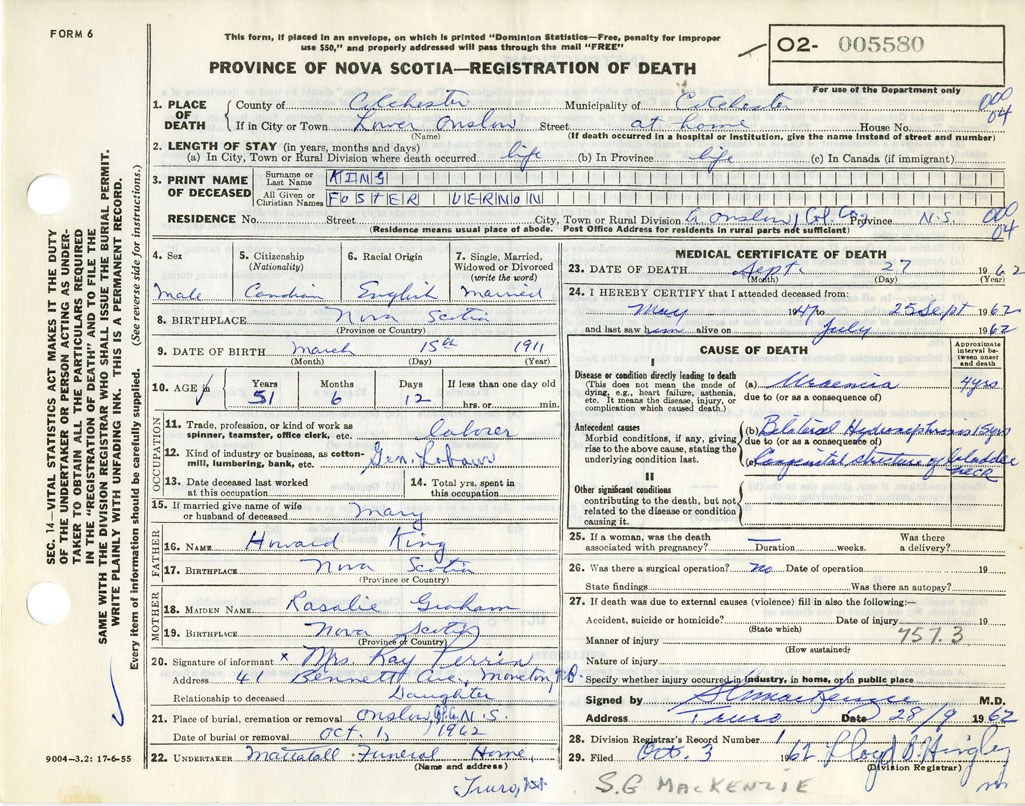 FORM 6
This form, if placed in an envelope, on which is printed "Dominion Statistics—Free, penalty for improper
use $50," and properly addressed will pass through the mail "FREE"
O2- 005580
For use of the Department only
PROVINCE OF NOVA SCOTIA—REGISTRATION OF DEATH
SEC. 14—VITAL STATISTICS ACT MAKES IT THE DUTY
OF THE UNDERTAKER OR PERSON ACTING AS UNDER-
TAKER TO OBTAIN ALL THE PARTICULARS REQUIRED
IN THE "REGISTRATION OF DEATH" AND TO FILE THE
SAME WITH THE DIVISION REGISTRAR WHO SHALL ISSUE THE BURIAL PERMIT.
WRITE PLAINLY WITH UNFADING INK. THIS IS A PERMANENT RECORD.
Every item of information should be carefully supplied. (See reverse side for instructions.)
1. PLACE OF DEATH County of Colchester Municipality of Colchester 000
If in City or Town Lower Onslow Street at home House No. 04
(Name) (If death occurred in a hospital or institution, give the name instead of street and number)
2. LENGTH OF STAY (in years, months and days)
(a) In City, Town or Rural Division where death occurred life (b) In Province life (c) In Canada (if immigrant)
3. PRINT NAME OF DECEASED Surname or Last Name KING
All Given or Christian Names FOSTER VERNON
RESIDENCE No. Street City, Town or Rural Division L. Onslow, Col. Co. Province N.S. 000
(Residence means usual place of abode. Post Office Address for residents in rural parts not sufficient) 04
4. Sex 5. Citizenship (Nationality) 6. Racial Origin 7. Single, Married, Widowed or Divorced (write the word)
Male Candian English Married
8. BIRTHPLACE Nova Scotia
(Province or Country)
9. DATE OF BIRTH March 15th 1911
(Month) (Day) (Year)
10. AGE Years Months Days If less than one day old
51 6 12 hrs. or min.
OCCUPATION
11. Trade, profession, or kind of work as spinner, teamster, office clerk, etc. laborer
12. Kind of industry or business, as cotton-mill, lumbering, bank, etc. Gen.
13. Date deceased last worked at this occupation 14. Total yrs. spent in this occupation
15. If married give name of wife or husband of deceased Mary
FATHER
16. NAME Howard King
17. BIRTHPLACE Nova Scotia
(Province or Country)
MOTHER
18. MAIDEN NAME Rosalie Graham
19. BIRTHPLACE Nova Scotia
(Province or Country)
20. Signature of informant x Mrs. Kay Perrin
Address 41 Bennett Ave, Moncton, N.B.
Relationship to deceased Daughter
21. Place of burial, cremation or removal Onslow, Col. Co. N.S.
Date of burial or removal Oct. 1, 1962
22. UNDERTAKER Mattatall Funeral Home,
(Name and address)
Truro, N.S.
9004—3.2: 17-6-55
MEDICAL CERTIFICATE OF DEATH
23. DATE OF DEATH Sept. 27 1962
(Month) (Day) (Year)
24. I HEREBY CERTIFY that I attended deceased from:
May 1947 to 25 Sept 1962
and last saw him alive on July 1962
CAUSE OF DEATH
Approximate interval between onset and death
I
Disease or condition directly leading to death
(This does not mean the mode of dying, e.g., heart failure, asthenia, etc. It means the disease, injury, or complication which caused death.)
(a) Uraemia 4 yrs
due to (or as a consequence of)
Antecedent causes
Morbid conditions, if any, giving rise to the above cause, stating the underlying condition last.
(b) Bilateral Hydronephrosis 15 yrs
due to (or as a consequence of)
(c) Congenital stricture of bladder neck
II
Other significant conditions
contributing to the death, but not related to the disease or condition causing it.
25. If a woman, was the death associated with pregnancy? — Duration weeks. Was there a delivery?
26. Was there a surgical operation? no Date of operation 19
State findings Was there an autopsy?
27. If death was due to external causes (violence) fill in also the following:—
Accident, suicide or homicide? Date of injury 19
(State which)
757.3
Manner of injury
(How sustained)
Nature of injury
Specify whether injury occurred in industry, in home, or in public place
Signed by SG MacKenzie M.D.
Address Truro Date 28/9 1962
28. Division Registrar's Record Number 1
29. Filed Oct. 3 1962 Lloyd D. Hingley
(Division Registrar)
S.G MACKENZIE